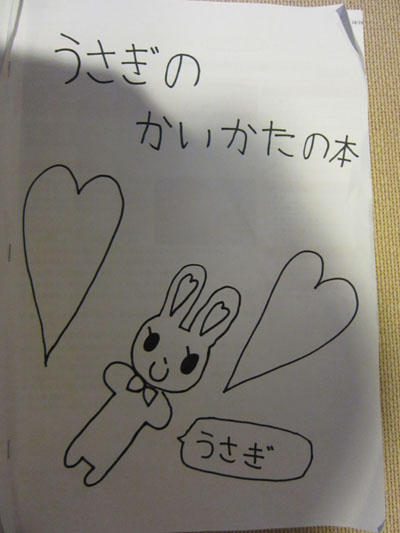 うさぎの
かいかたの本
うさぎ